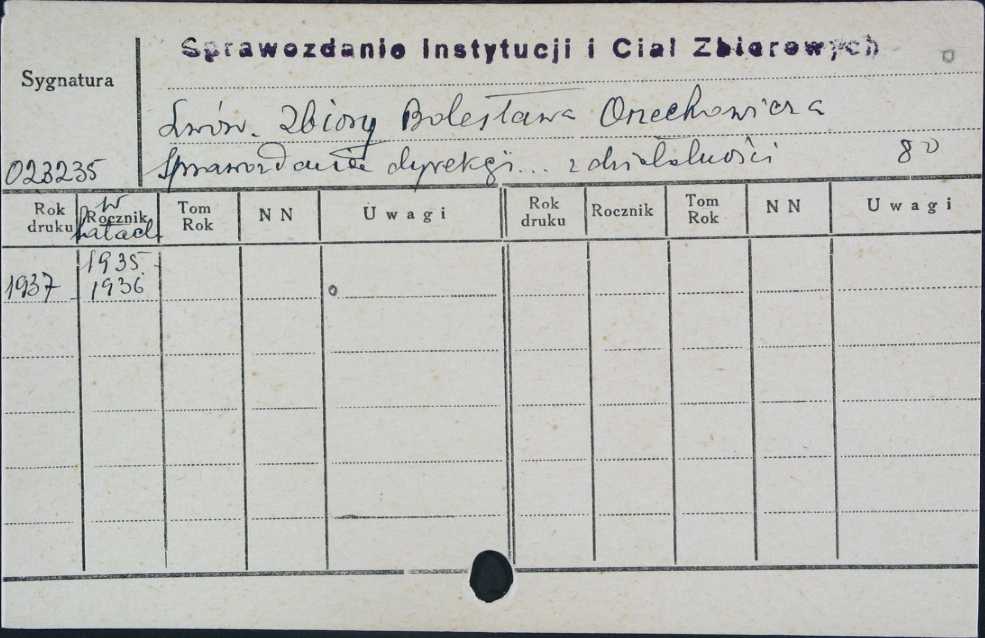 Sprawozdanie Instytucji i Ciał Zbiorowych
Sygnatura
Lwów. Zbiory Bolesława Orzechowicza
023235 Sprawozdanie dyrekcji... z działalności 8°
Rok druku w Rocznik latach Tom Rok NN Uwagi Rok druku Rocznik Tom Rok NN Uwagi
1935
1937 1936